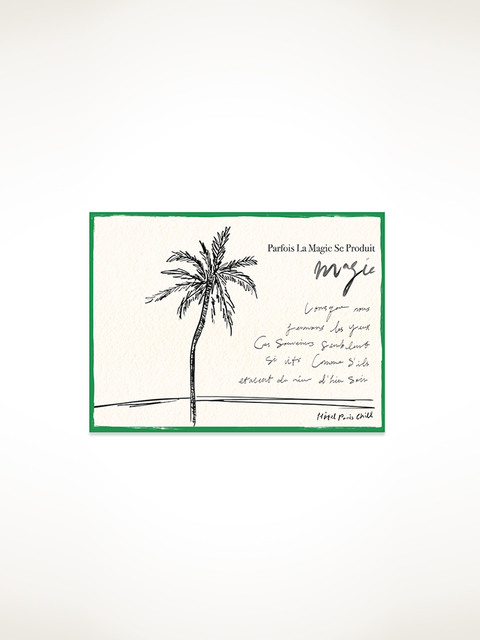 Parfois La Magie Se Produit
magie
Lorsque nous
fermons les yeux
Ces Souvenirs Semblent
Si vifs Comme S'ils
étaient de d'hier Soir
Hôtel Paris Chill